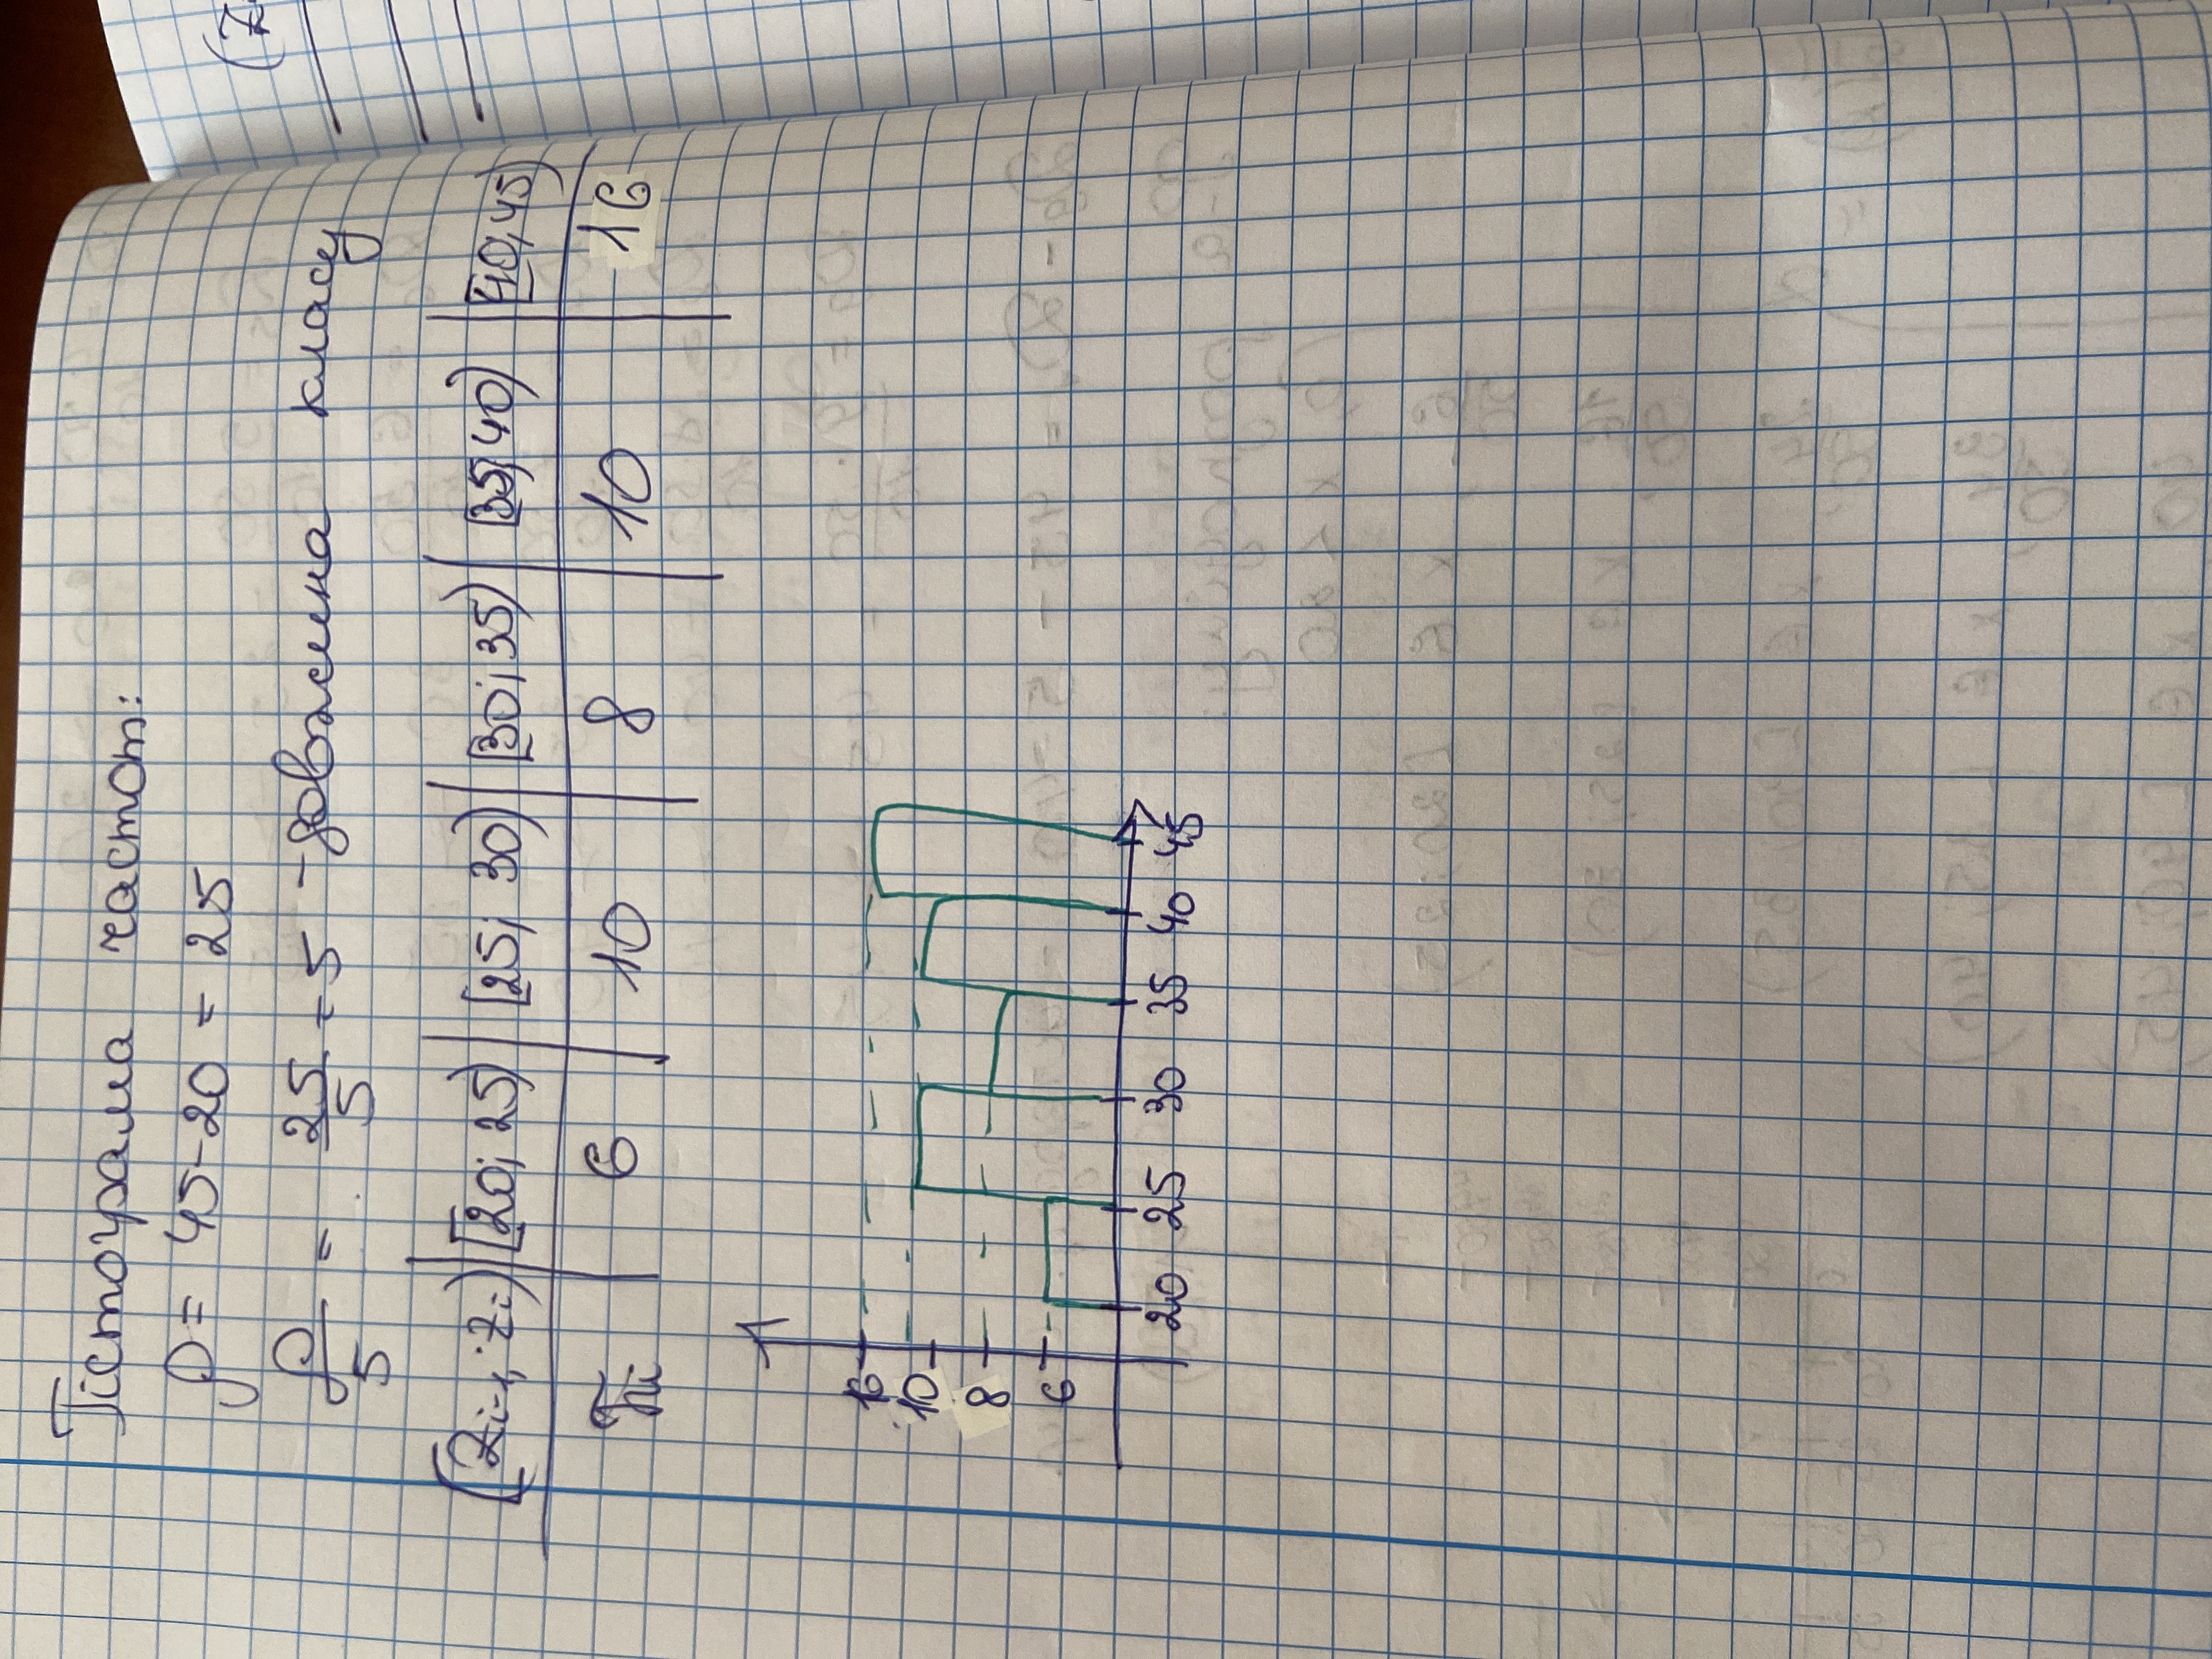 Гістограма частот:
ρ = 45-20 = 25
ρ/5 = 25/5 = 5 - довжина класу
[Zi-1; Zi) | [20; 25) | [25; 30) | [30; 35) | [35; 40) | [40; 45)
ni | 6 | 10 | 8 | 10 | 16
16
10
8
6
20 25 30 35 40 45
(Z